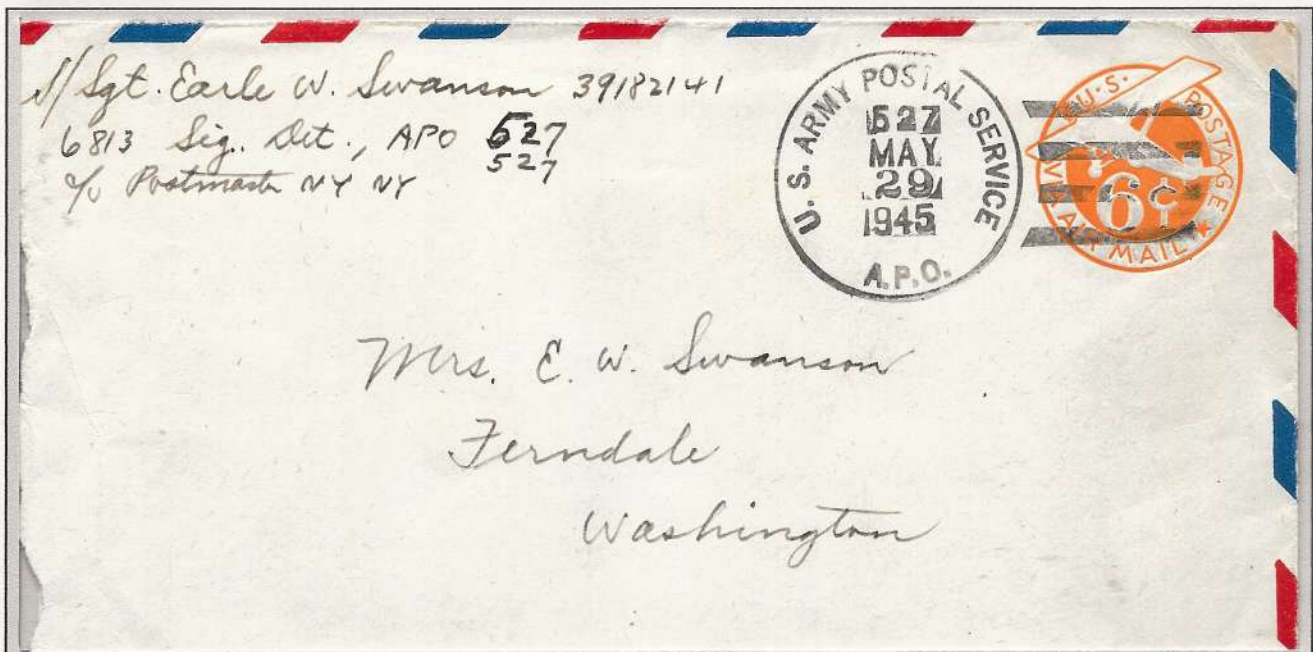 S/Sgt. Earle W. Swanson 39182141
6813 Sig. Det., APO 527
527
c/o Postmaster NY NY
U. S. ARMY POSTAL SERVICE
527
MAY
29
1945
A.P.O.
U.S. POSTAGE
6¢
VIA AIR MAIL
Mrs. E. W. Swanson
Ferndale
Washington